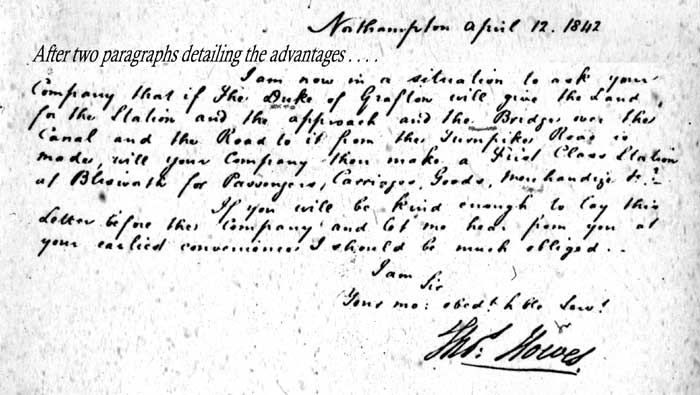 Northampton April 12. 1842
After two paragraphs detailing the advantages . . . .
I am now in a situation to ask your
Company that if The Duke of Grafton will give the Land
for the Station and the approach and the Bridge over the
Canal and the Road to it from the Turnpike Road is
made, will your Company then make a First Class Station
at Blisworth for Passengers, Carriages, Goods, Merchandize &c?
If you will be kind enough to lay this
Letter before the Company and let me hear from you at
your earliest convenience I should be much obliged..
I am
Sir
Your mo: obedt. hble Servt.
Thos. Howes